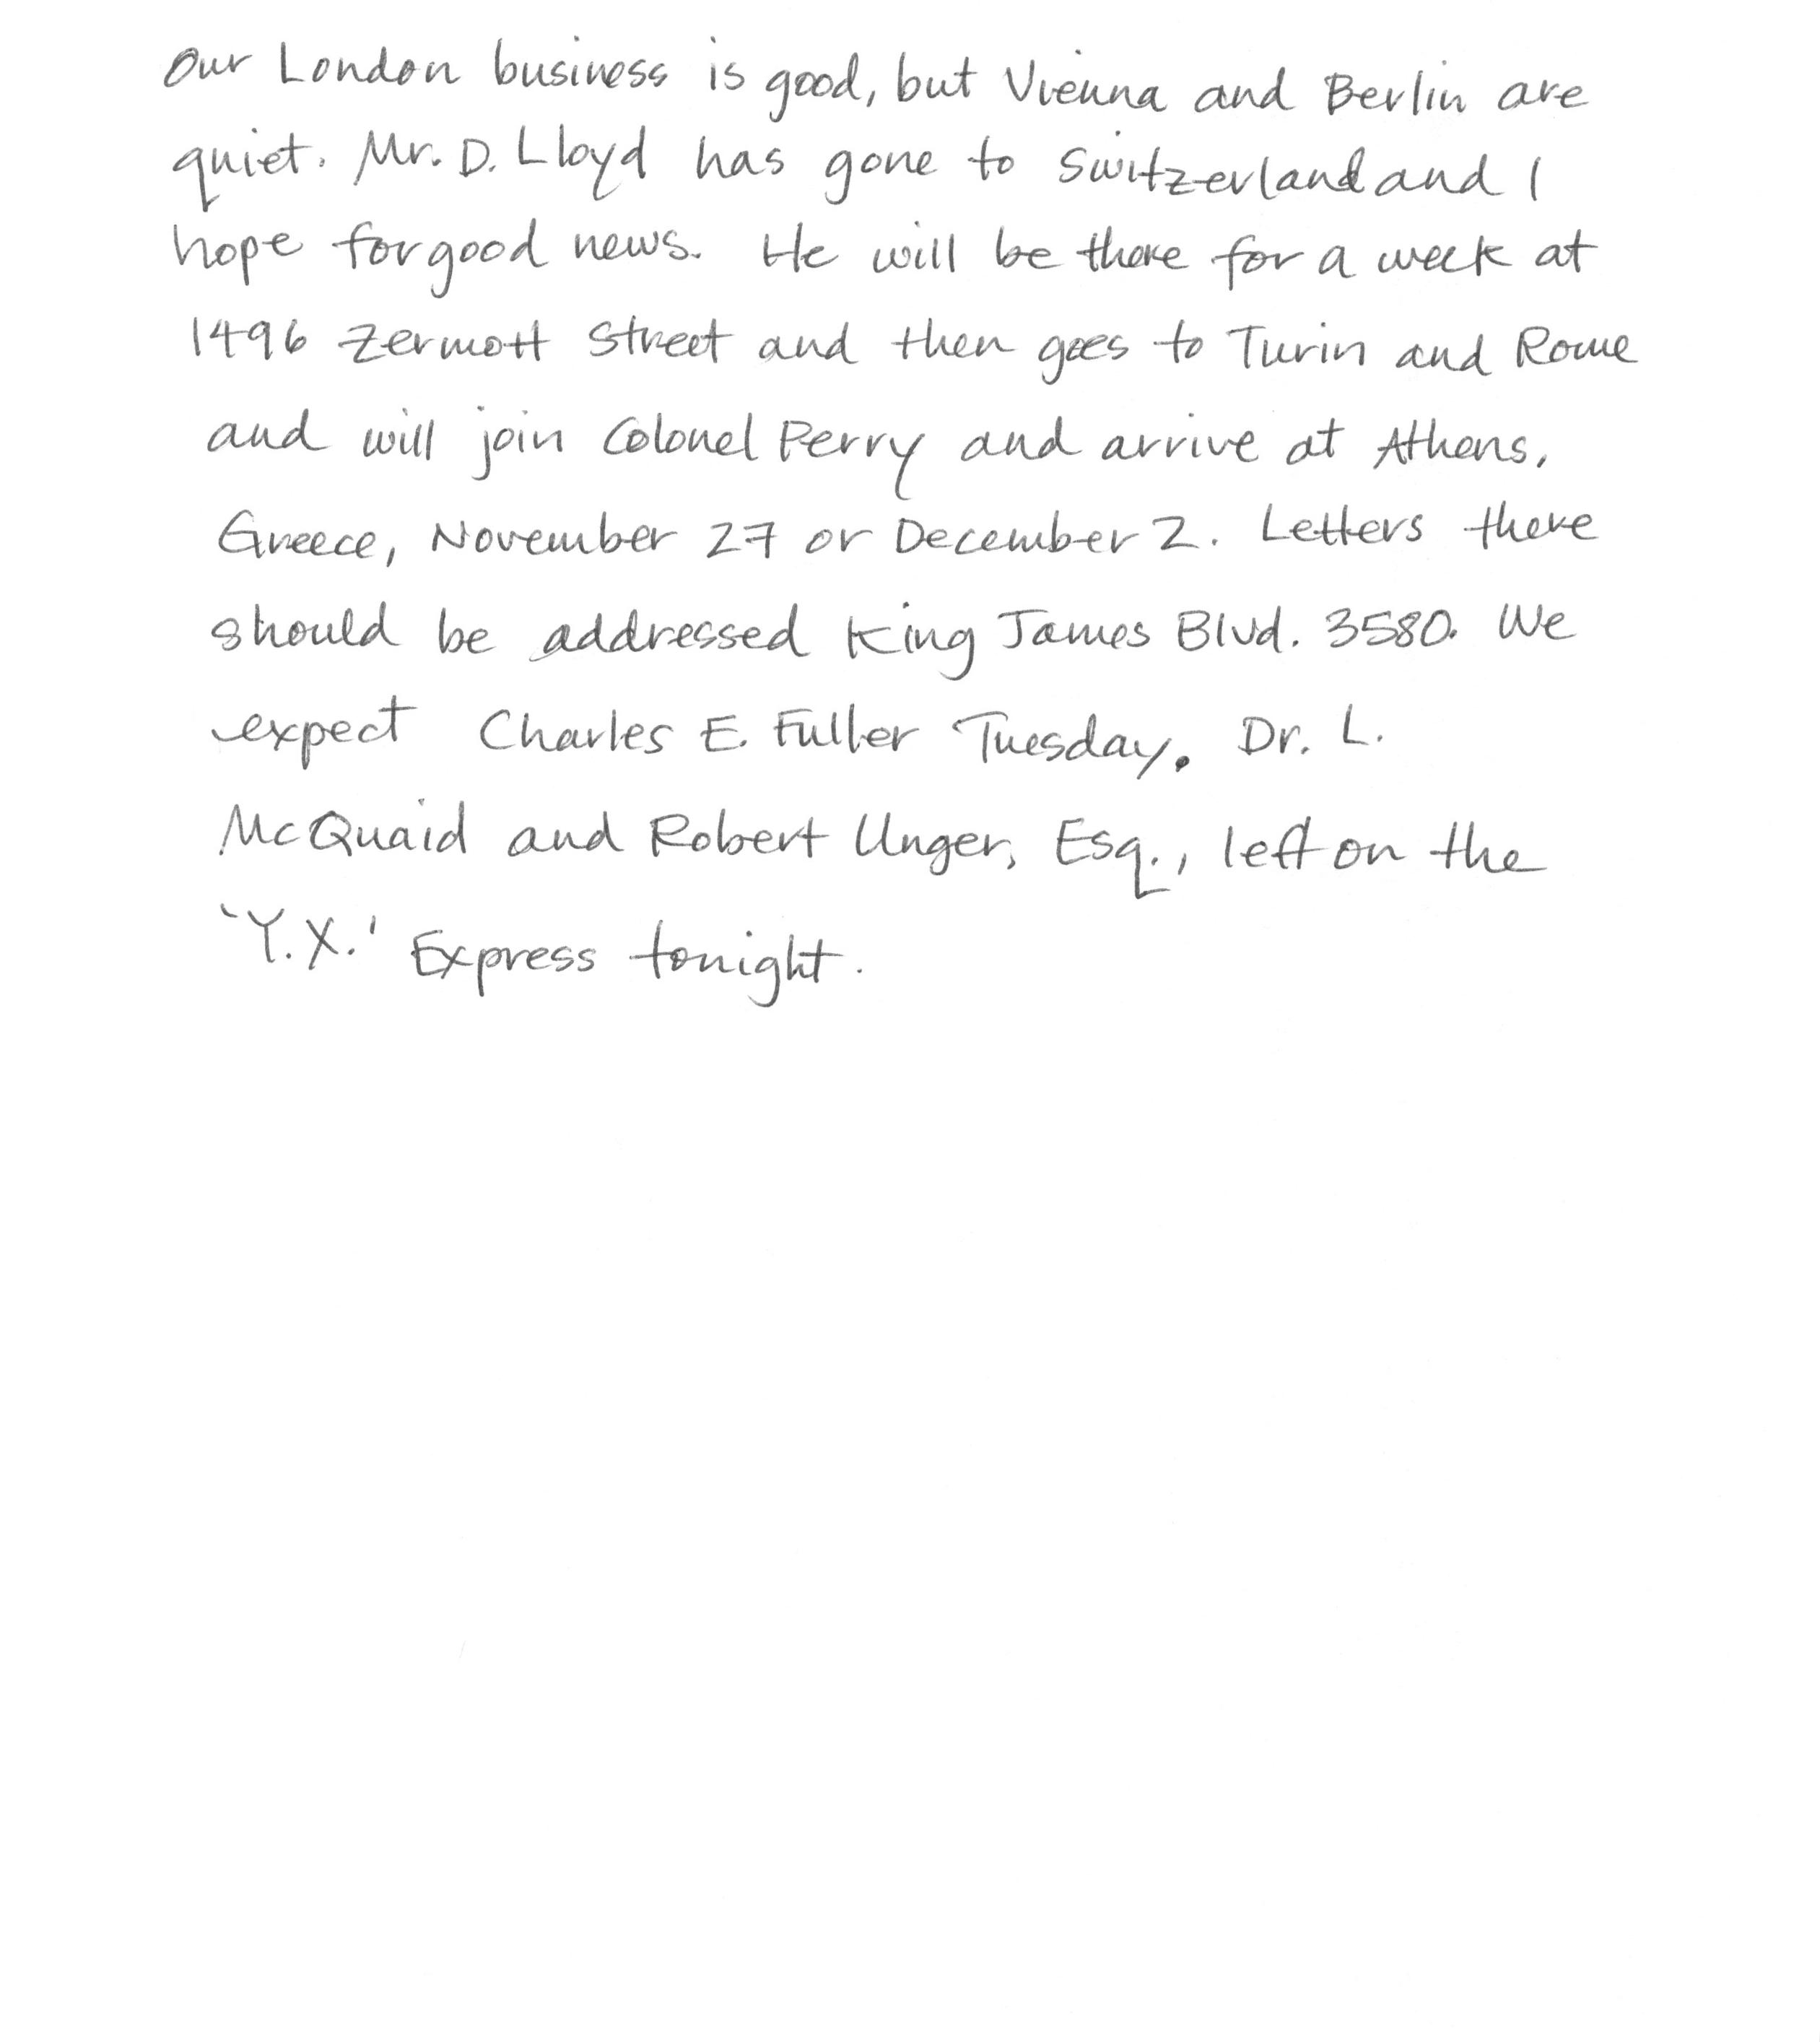 Our London business is good, but Vienna and Berlin are
quiet. Mr. D. Lloyd has gone to Switzerland and I
hope for good news. He will be there for a week at
1496 Zermott Street and then goes to Turin and Rome
and will join Colonel Perry and arrive at Athens,
Greece, November 27 or December 2. Letters there
should be addressed King James Blvd. 3580. We
expect Charles E. Fuller Tuesday. Dr. L.
McQuaid and Robert Unger, Esq., left on the
'Y.X.' Express tonight.